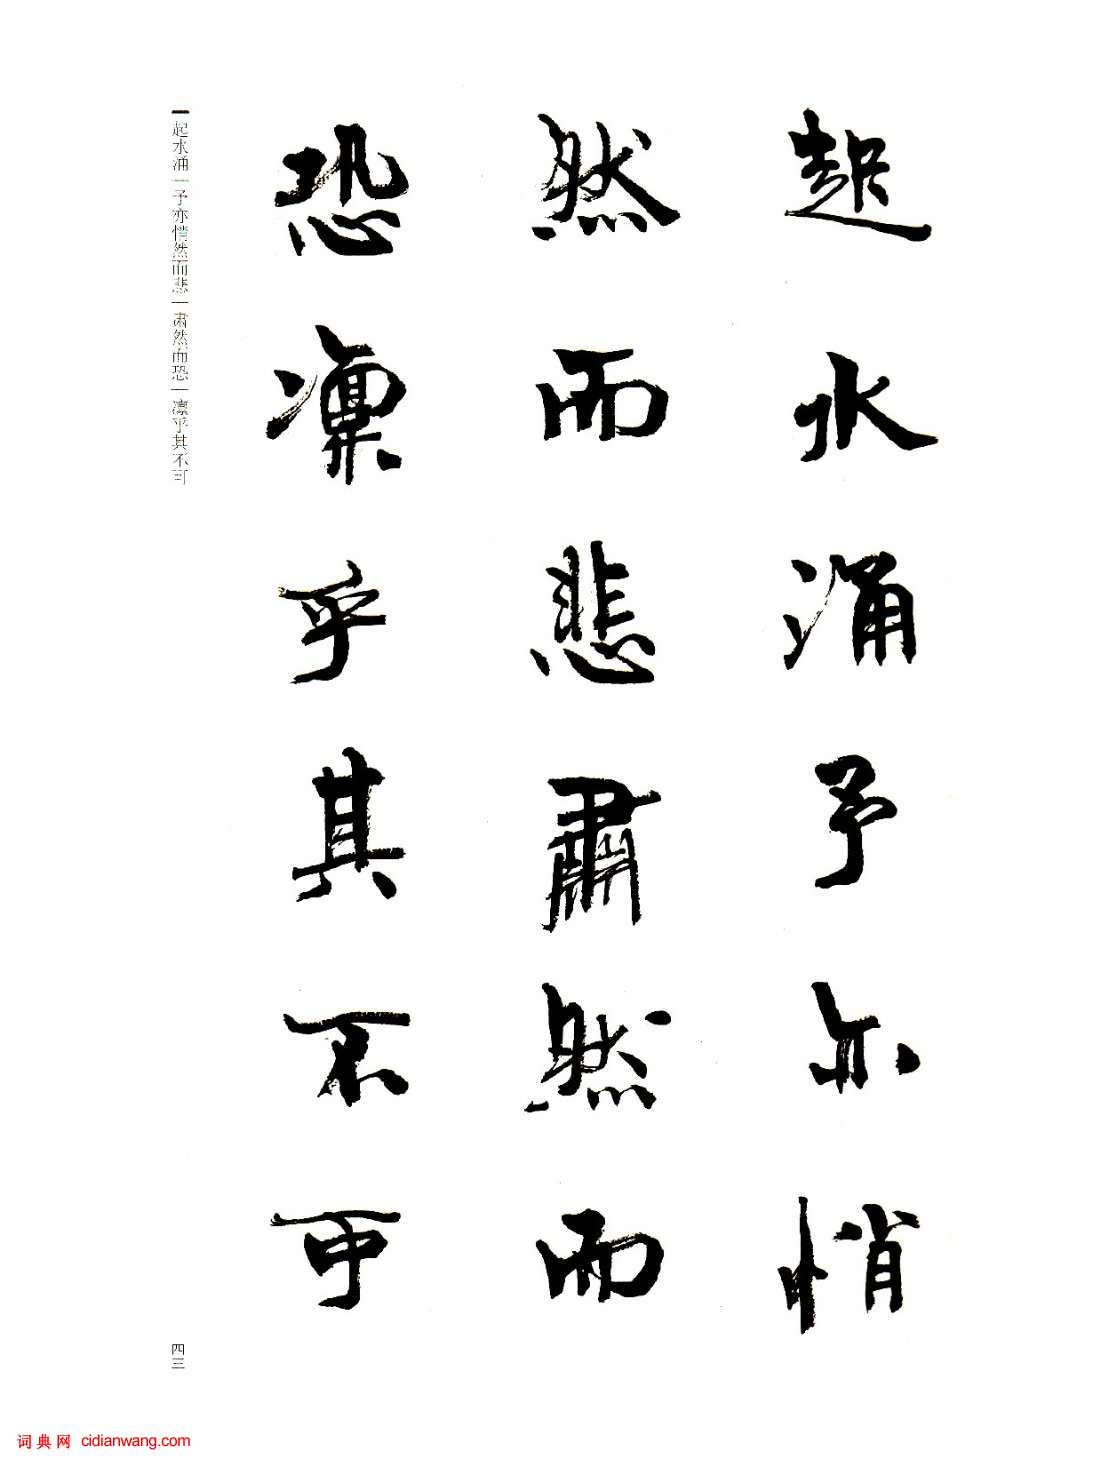 起水涌予亦悄
然而悲肃然而
恐凛乎其不可
起水涌一予亦悄然而悲一肃然而恐一凛乎其不可
四三
词典网 cidianwang.com